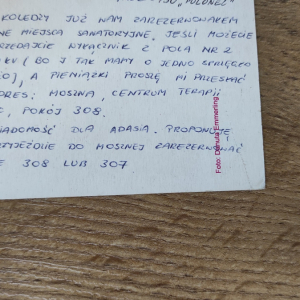 "POLONEZ"
KOLEDZY JUŻ WAM ZAREZERWOWAŁEM
NE MIEJSCA SANATORYJNE. JEŚLI MOŻECIE
RZEDAJCIE WYŁĄCZNIK Z POLA NR 2
(BO I TAK MAMY O JEDNO
, A PIENIĄZKI PROSZĘ MI PRZESŁAĆ
DRES: MOSZNA, CENTRUM TERAPII
, POKÓJ 308.
IADOMOŚĆ DLA ADASIA. PROPONUJĘ
ZYJEŹDZIE DO MOSZNEJ ZAREZERWOWAĆ
IE 308 LUB 307
Foto: Danuta Emmerling